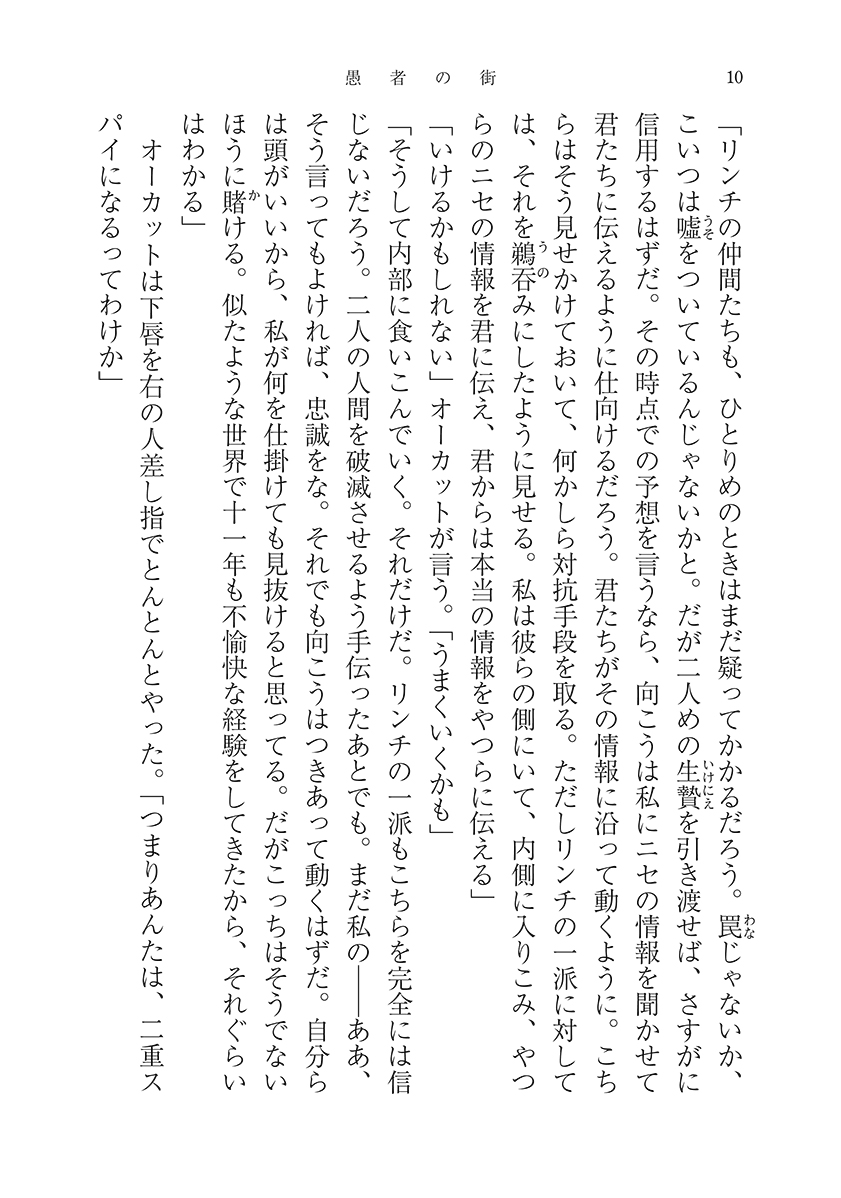 愚者の街
10
「リンチの仲間たちも、ひとりめのときはまだ疑ってかかるだろう。罠じゃないか、
こいつは嘘をついているんじゃないかと。だが二人めの生贄を引き渡せば、さすがに
信用するはずだ。その時点での予想を言うなら、向こうは私にニセの情報を聞かせて
君たちに伝えるように仕向けるだろう。君たちがその情報に沿って動くように。こち
らはそう見せかけておいて、何かしら対抗手段を取る。ただしリンチの一派に対して
は、それを鵜呑みにしたように見せる。私は彼らの側にいて、内側に入りこみ、やつ
らのニセの情報を君に伝え、君からは本当の情報をやつらに伝える」
「いけるかもしれない」オーカットが言う。「うまくいくかも」
「そうして内部に食いこんでいく。それだけだ。リンチの一派もこちらを完全には信
じないだろう。二人の人間を破滅させるよう手伝ったあとでも。まだ私の――ああ、
そう言ってもよければ、忠誠をな。それでも向こうはつきあって動くはずだ。自分ら
は頭がいいから、私が何を仕掛けても見抜けると思ってる。だがこっちはそうでない
ほうに賭ける。似たような世界で十一年も不愉快な経験をしてきたから、それぐらい
はわかる」
　オーカットは下唇を右の人差し指でとんとんとやった。「つまりあんたは、二重ス
パイになるってわけか」